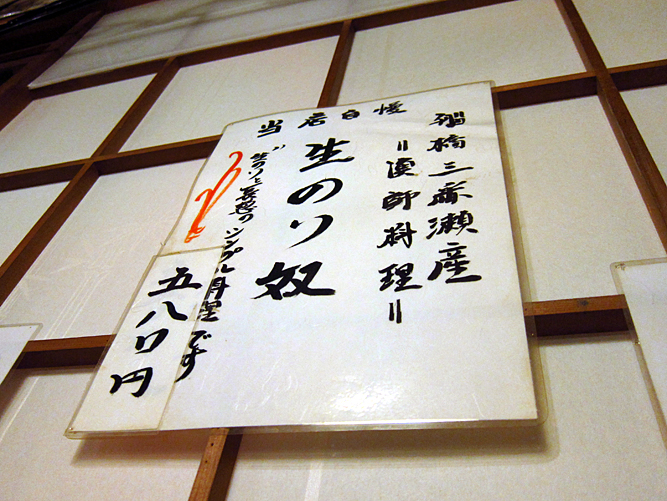 船橋三番瀬産
=漁師料理=
当店自慢
生のり奴
生のりと豆腐のシンプル料理です
五八〇円